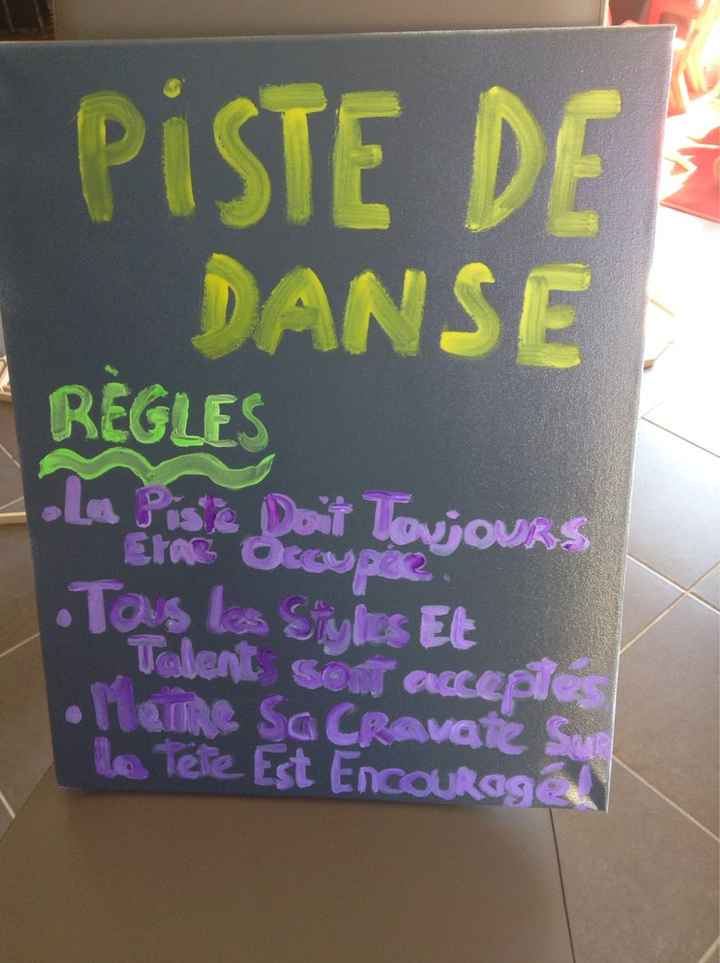 PiSTE DE
DANSE
RÈGLES
• La Piste Doit Toujours
Etre Occupée.
• Tous les Styles Et
Talents sont acceptés
• Mettre Sa Cravate Sur
la Tête Est Encouragé!